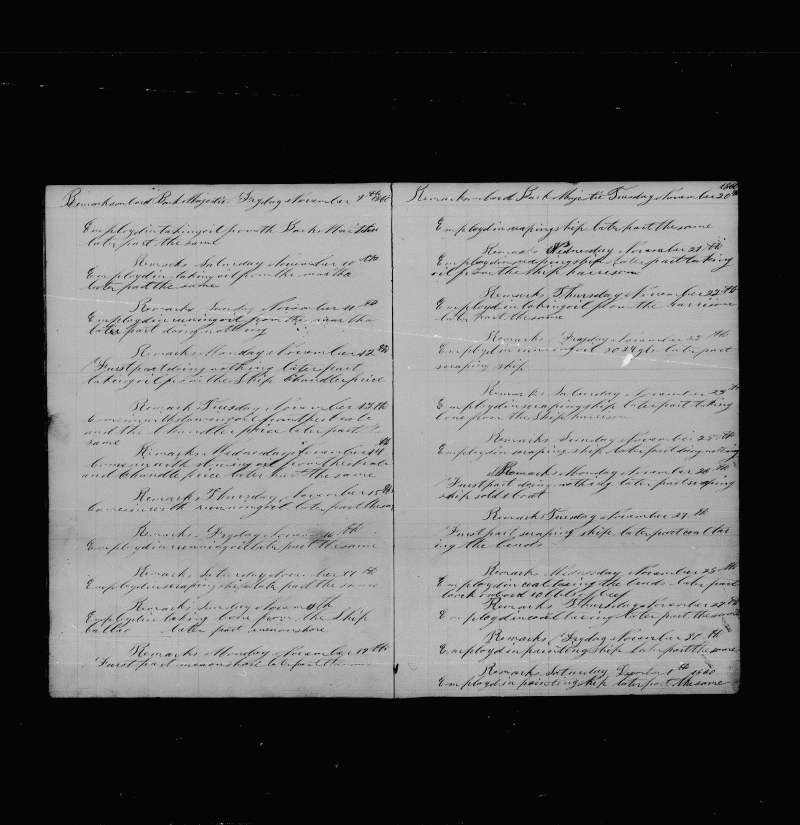 Remarks on bord Bark Majestic Fryday November 9th 1860
Employd in taking oil from th Bark Martha
later part the same
Remarks Saturday November 10 th
Employd in taking oil from the martha
later part the same
Remarks Sunday November 11 th
Employd in runing oil from the martha
later part doing nothing
Remarks Monday November 12 th
Furst part doing nothing later part
taking oil from the Ship Chandler price
Remark Tuesday November 13 th
Comes in with stowing oil from
and the Chandler price later part the
same
Remarks Wednesday November 14 th
Comes in with stowing oil from
and Chandler price later part the same
Remarks Thursday November 15 th
Comes in with running oil later part the same
Remarks Fryday November 16 th
Employd in running oil later part the same
Remarks Saturday November 17 th
Employd in scraping ship later part the same
Remarks Sunday November 18 th
Employd in taking bone from the Ship
later part men on shore
Remarks Monday November 19 th
Furst part men on shore later part the same
Remarks on bord Bark Majestic Tuesday November 20 th 1860
Employd in scraping ship later part the same
Remarks Wednesday November 21 th
Employd in scraping ship later part taking
oil from the Ship harrison
Remarks Thursday November 22 th
Employd in taking oil from the harrison
later part the same
Remarks Fryday November 23 th
Employd in runing oil gls later part
scraping ship
Remarks Saturday November 24 th
Employd in scraping ship later part taking
bone from the Ship harrison
Remarks Sunday November 25 th
Employd in scraping ship later part doing nothing
Remarks Monday November 26 th
Furst part doing nothing later part scraping
ship sold 1 boat
Remarks Tuesday November 27 th
Furst part scraping ship later part coal tar
ing the bends
Remarks Wednesday November 28 th
Employd in coal taring the bends later part
took onbord 10 bbls of beef
Remarks Thursday November 29 th
Employd in coal taring later part the same
Remarks Fryday November 30 th
Employd in painting ship later part the same
Remarks Saturday December 1 th 1860
Employd in painting ship later part the same